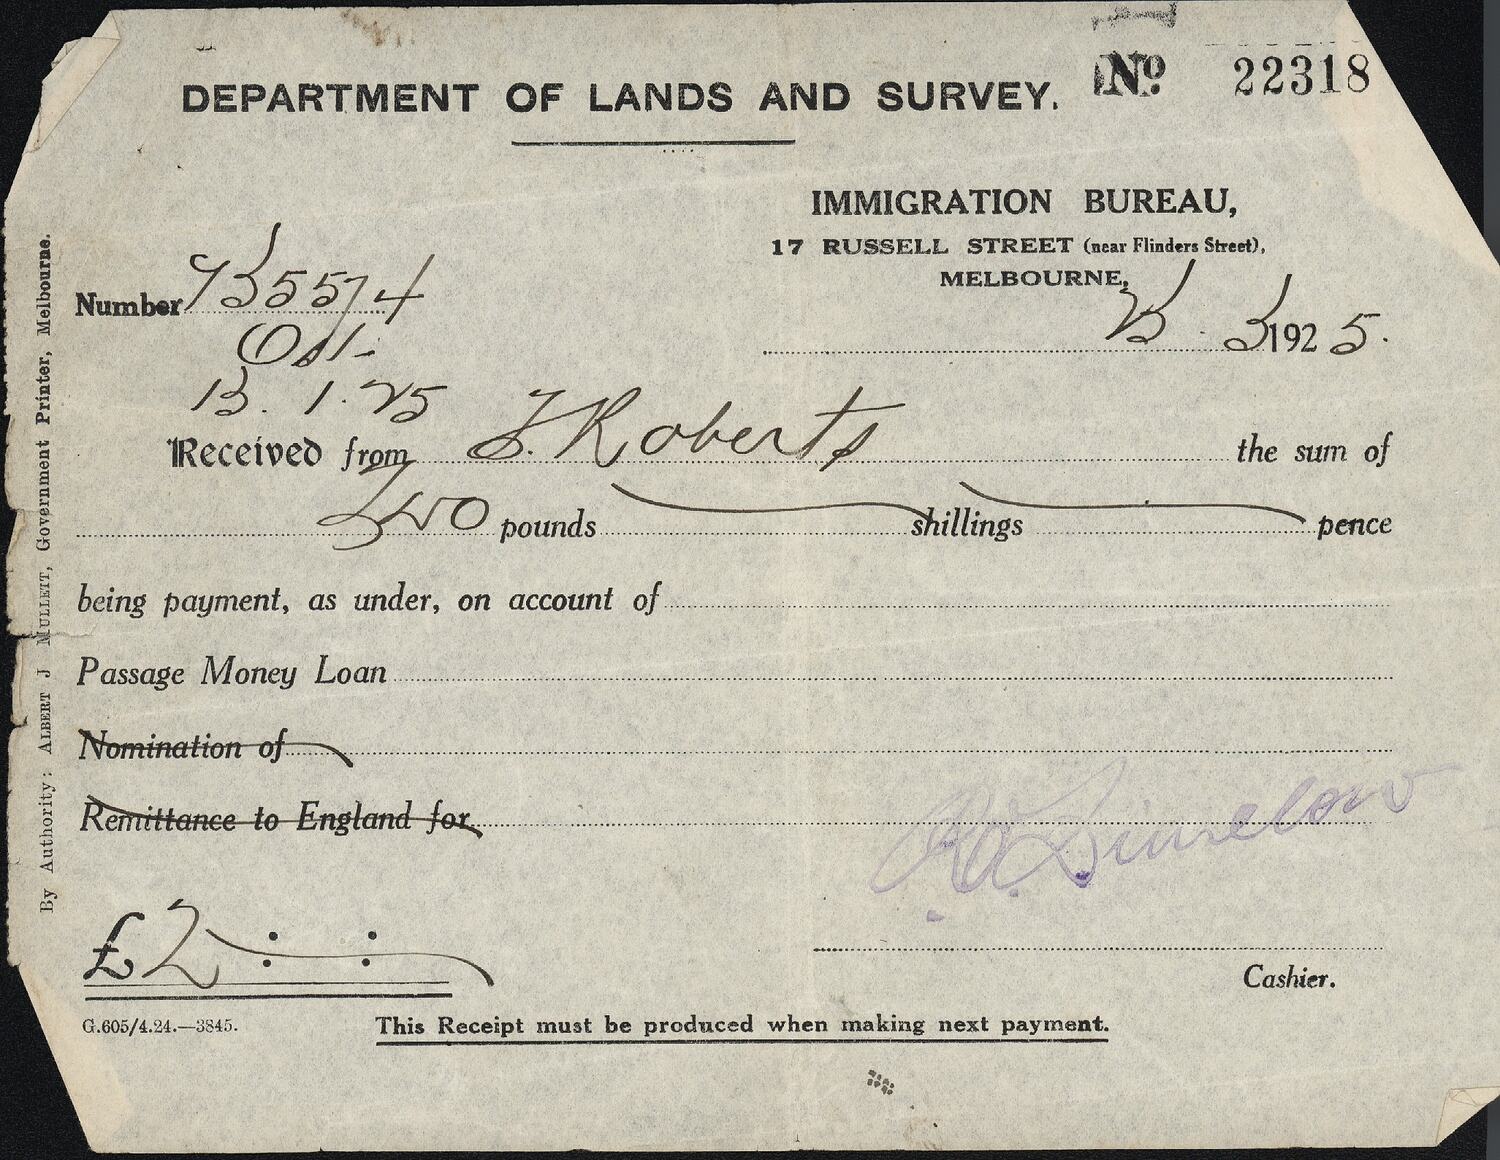 DEPARTMENT OF LANDS AND SURVEY.
No. 22318
IMMIGRATION BUREAU,
17 RUSSELL STREET (near Flinders Street),
MELBOURNE,
3 1925.
Number
13.1.25
Received from F. Roberts the sum of
Two pounds shillings pence
being payment, as under, on account of
Passage Money Loan
Nomination of
Remittance to England for
£2 : :
Cashier.
G.605/4.24.—3845.
This Receipt must be produced when making next payment.
By Authority: ALBERT J MULLETT, Government Printer, Melbourne.